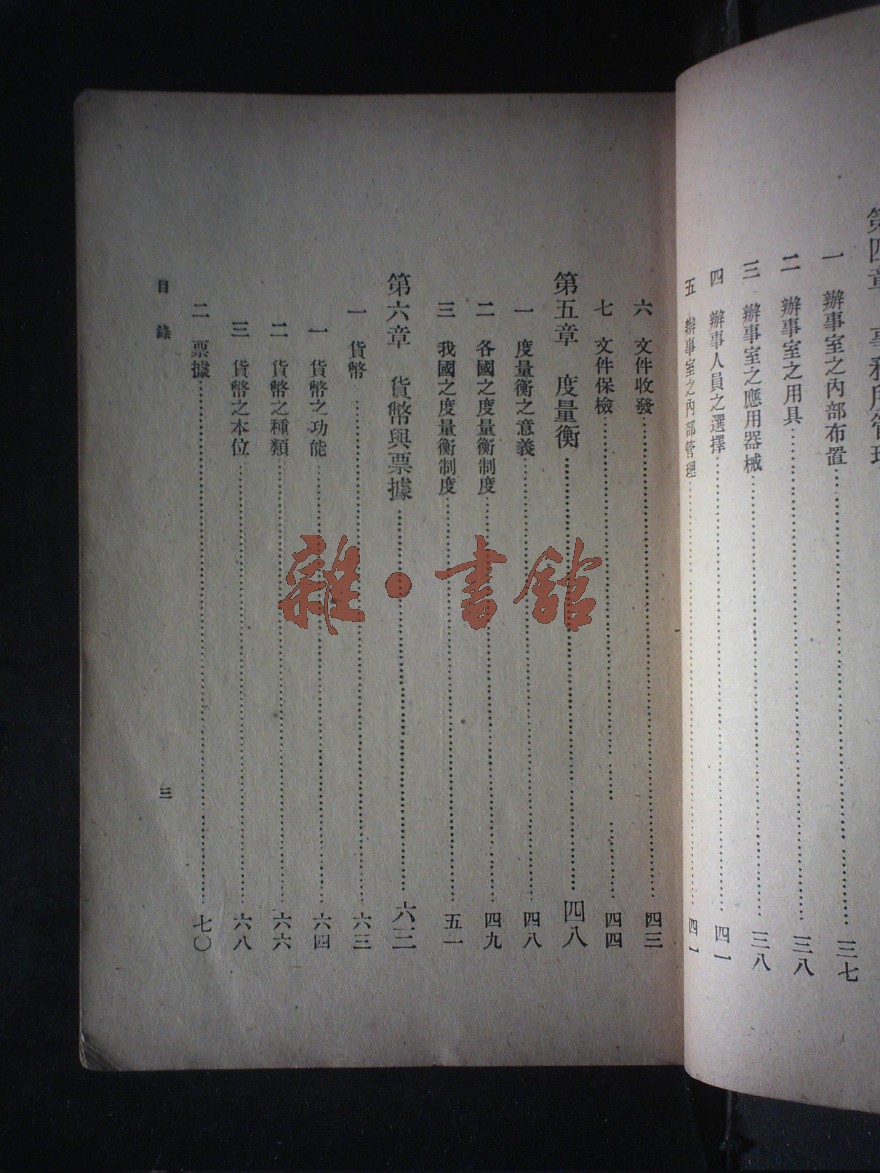 第四章 事務所管理
一 辦事室之內部布置 三七
二 辦事室之用具 三八
三 辦事室之應用器械 三八
四 辦事人員之選擇 四一
五 辦事室之內部管理 四一
六 文件收發 四三
七 文件保檢 四四
第五章 度量衡 四八
一 度量衡之意義 四八
二 各國之度量衡制度 四九
三 我國之度量衡制度 五一
第六章 貨幣與票據 六三
一 貨幣 六三
一 貨幣之功能 六四
二 貨幣之種類 六六
三 貨幣之本位 六八
二 票據 七〇
目錄
三
雜·書館